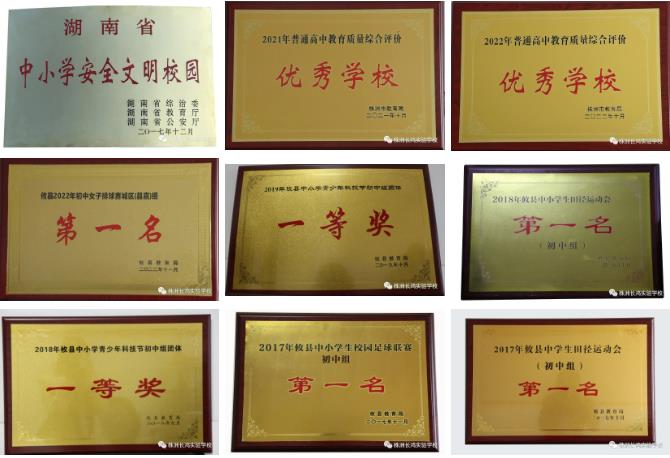 湖南省
中小学安全文明校园
湖南省综治委
湖南省教育厅
湖南省公安厅
二〇一七年十二月
2021年普通高中教育质量综合评价
优秀学校
株洲市教育局
二〇二一年十月
株洲长鸿实验学校
2022年普通高中教育质量综合评价
优秀学校
株洲市教育局
二〇二二年十月
株洲长鸿实验学校
攸县2022年初中女子排球赛城区(县直)组
第一名
攸县教育局
二〇二二年十一月
株洲长鸿实验学校
2019年攸县中小学青少年科技节初中组团体
一等奖
攸县教育局
二〇一九年十月
株洲长鸿实验学校
2018年攸县中小学生田径运动会
第一名
(初中组)
攸县教育局
株洲长鸿实验学校
2018年攸县中小学青少年科技节初中组团体
一等奖
攸县教育局
株洲长鸿实验学校
2017年攸县中小学生校园足球联赛
初中组
第一名
攸县教育局
二〇一七年十一月
株洲长鸿实验学校
2017年攸县中学生田径运动会
(初中组)
第一名
攸县教育局
二〇一七年十月
株洲长鸿实验学校